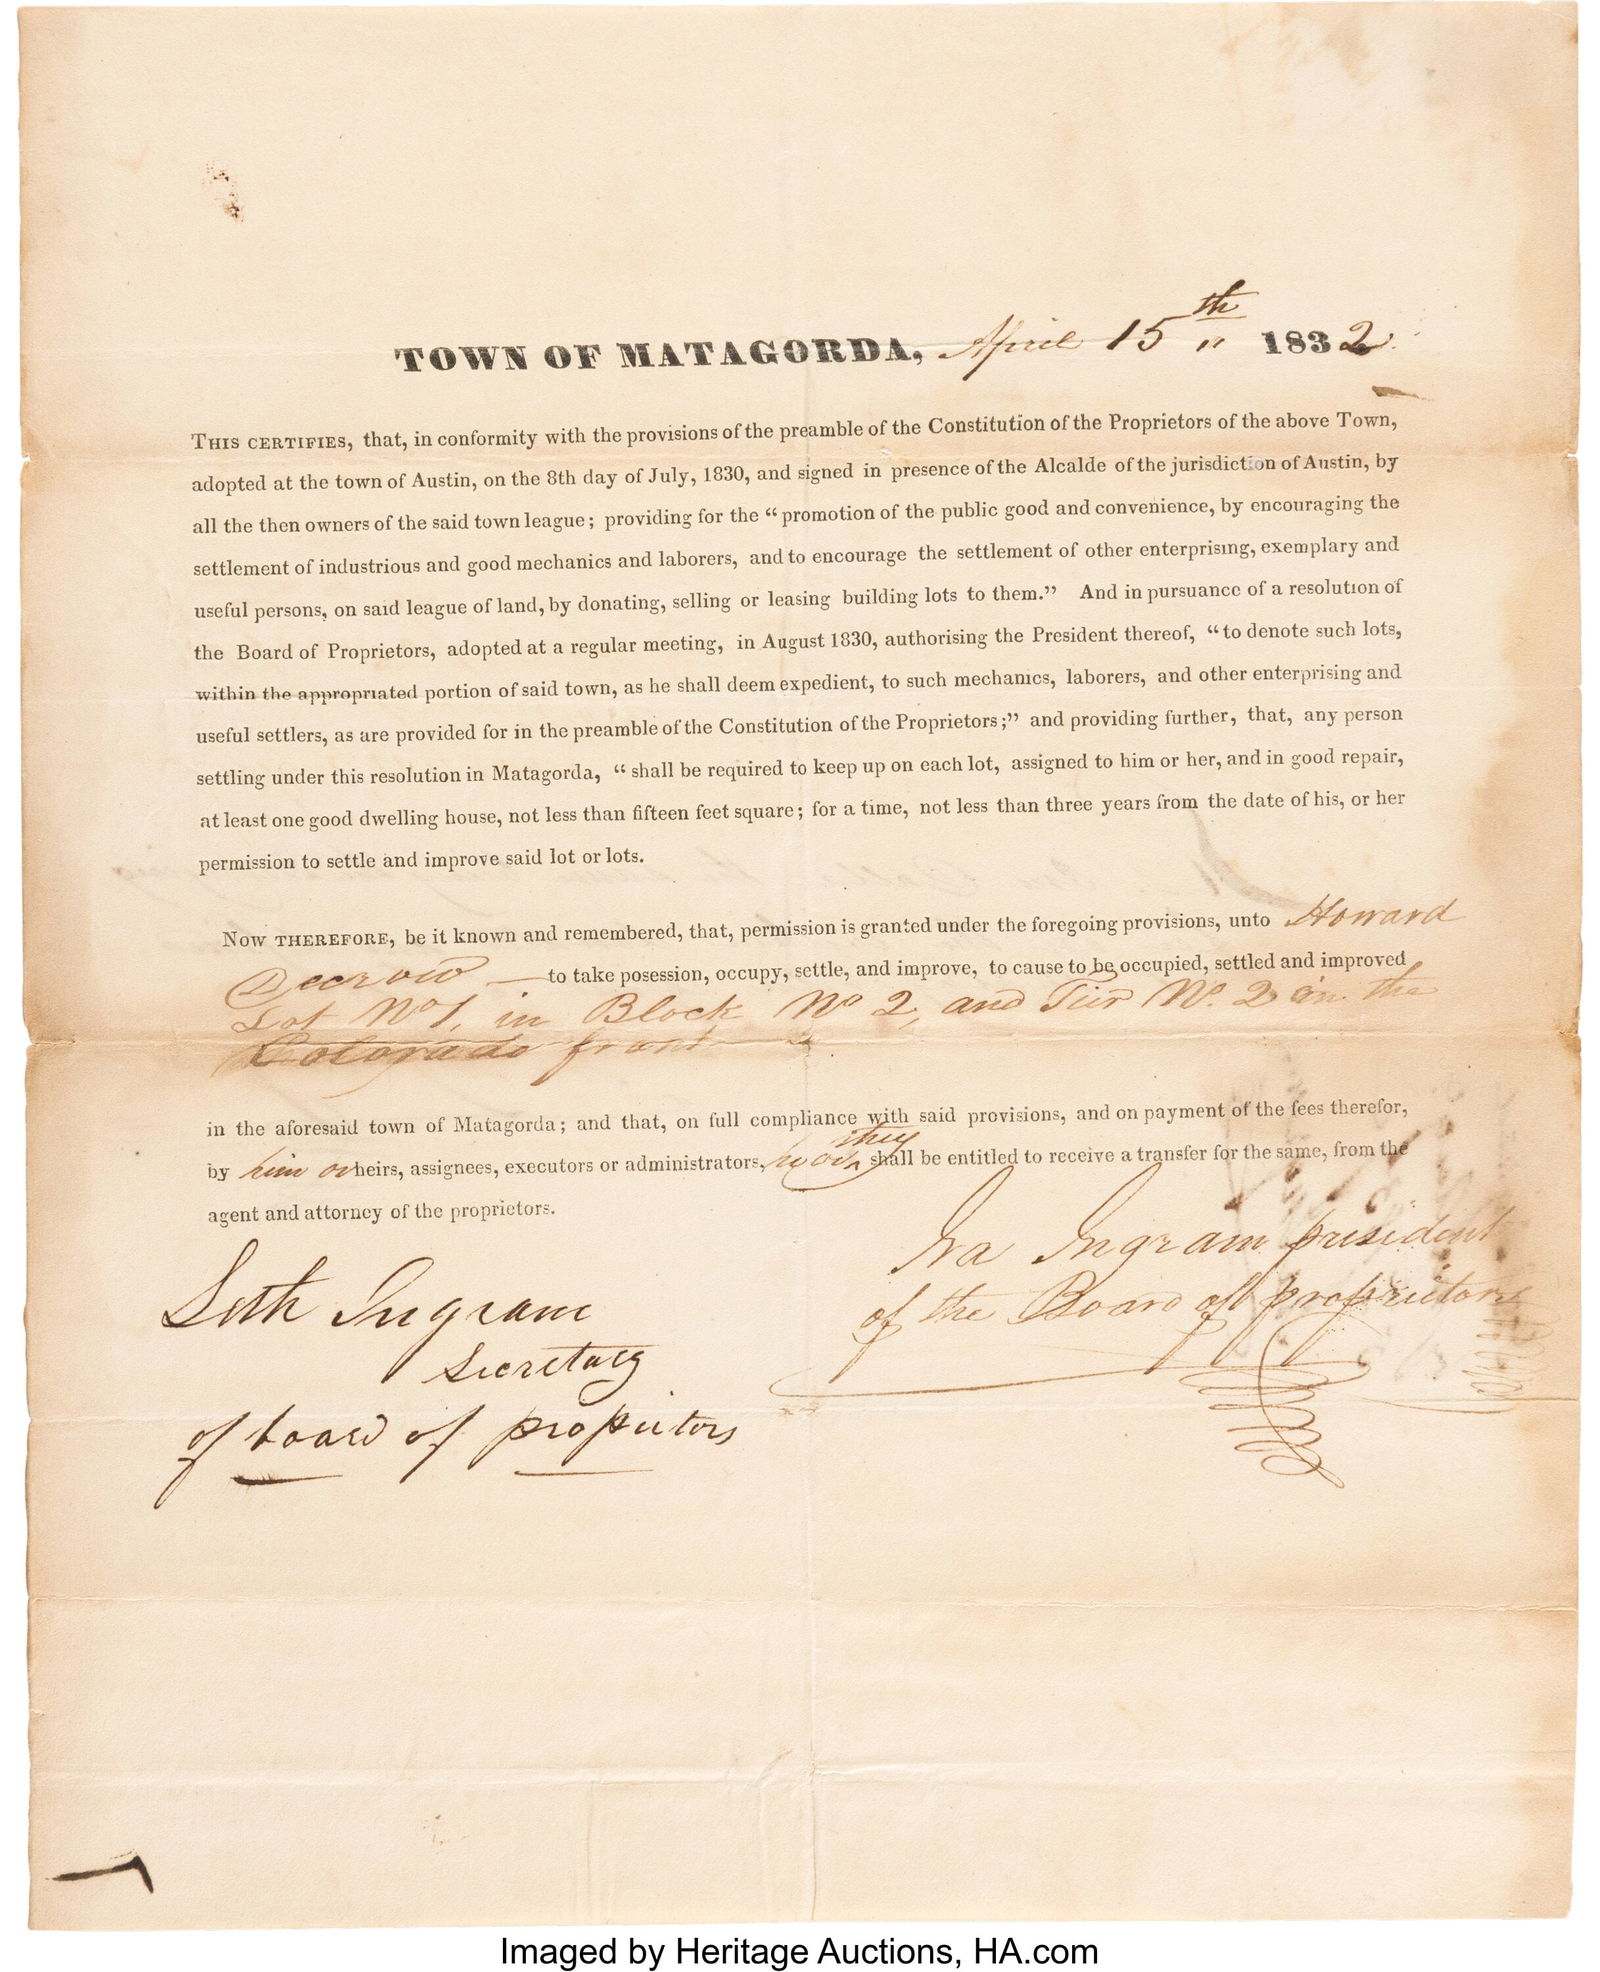 TOWN OF MATAGORDA, April 15th " 1832.
THIS CERTIFIES, that, in conformity with the provisions of the preamble of the Constitution of the Proprietors of the above Town,
adopted at the town of Austin, on the 8th day of July, 1830, and signed in presence of the Alcalde of the jurisdiction of Austin, by
all the then owners of the said town league; providing for the "promotion of the public good and convenience, by encouraging the
settlement of industrious and good mechanics and laborers, and to encourage the settlement of other enterprising, exemplary and
useful persons, on said league of land, by donating, selling or leasing building lots to them." And in pursuance of a resolution of
the Board of Proprietors, adopted at a regular meeting, in August 1830, authorising the President thereof, "to denote such lots,
within the appropriated portion of said town, as he shall deem expedient, to such mechanics, laborers, and other enterprising and
useful settlers, as are provided for in the preamble of the Constitution of the Proprietors;" and providing further, that, any person
settling under this resolution in Matagorda, "shall be required to keep up on each lot, assigned to him or her, and in good repair,
at least one good dwelling house, not less than fifteen feet square; for a time, not less than three years from the date of his, or her
permission to settle and improve said lot or lots.
NOW THEREFORE, be it known and remembered, that, permission is granted under the foregoing provisions, unto Howard
Decrow — to take posession, occupy, settle, and improve, to cause to be occupied, settled and improved
Lot No 1, in Block No 2, and Tier No. 2 in the
Colorado front
in the aforesaid town of Matagorda; and that, on full compliance with said provisions, and on payment of the fees therefor,
by him or heirs, assignees, executors or administrators, he or they shall be entitled to receive a transfer for the same, from the
agent and attorney of the proprietors.
Ira Ingram president
of the Board of proprietors
Seth Ingram
Secretary
of board of proprietors
Imaged by Heritage Auctions, HA.com